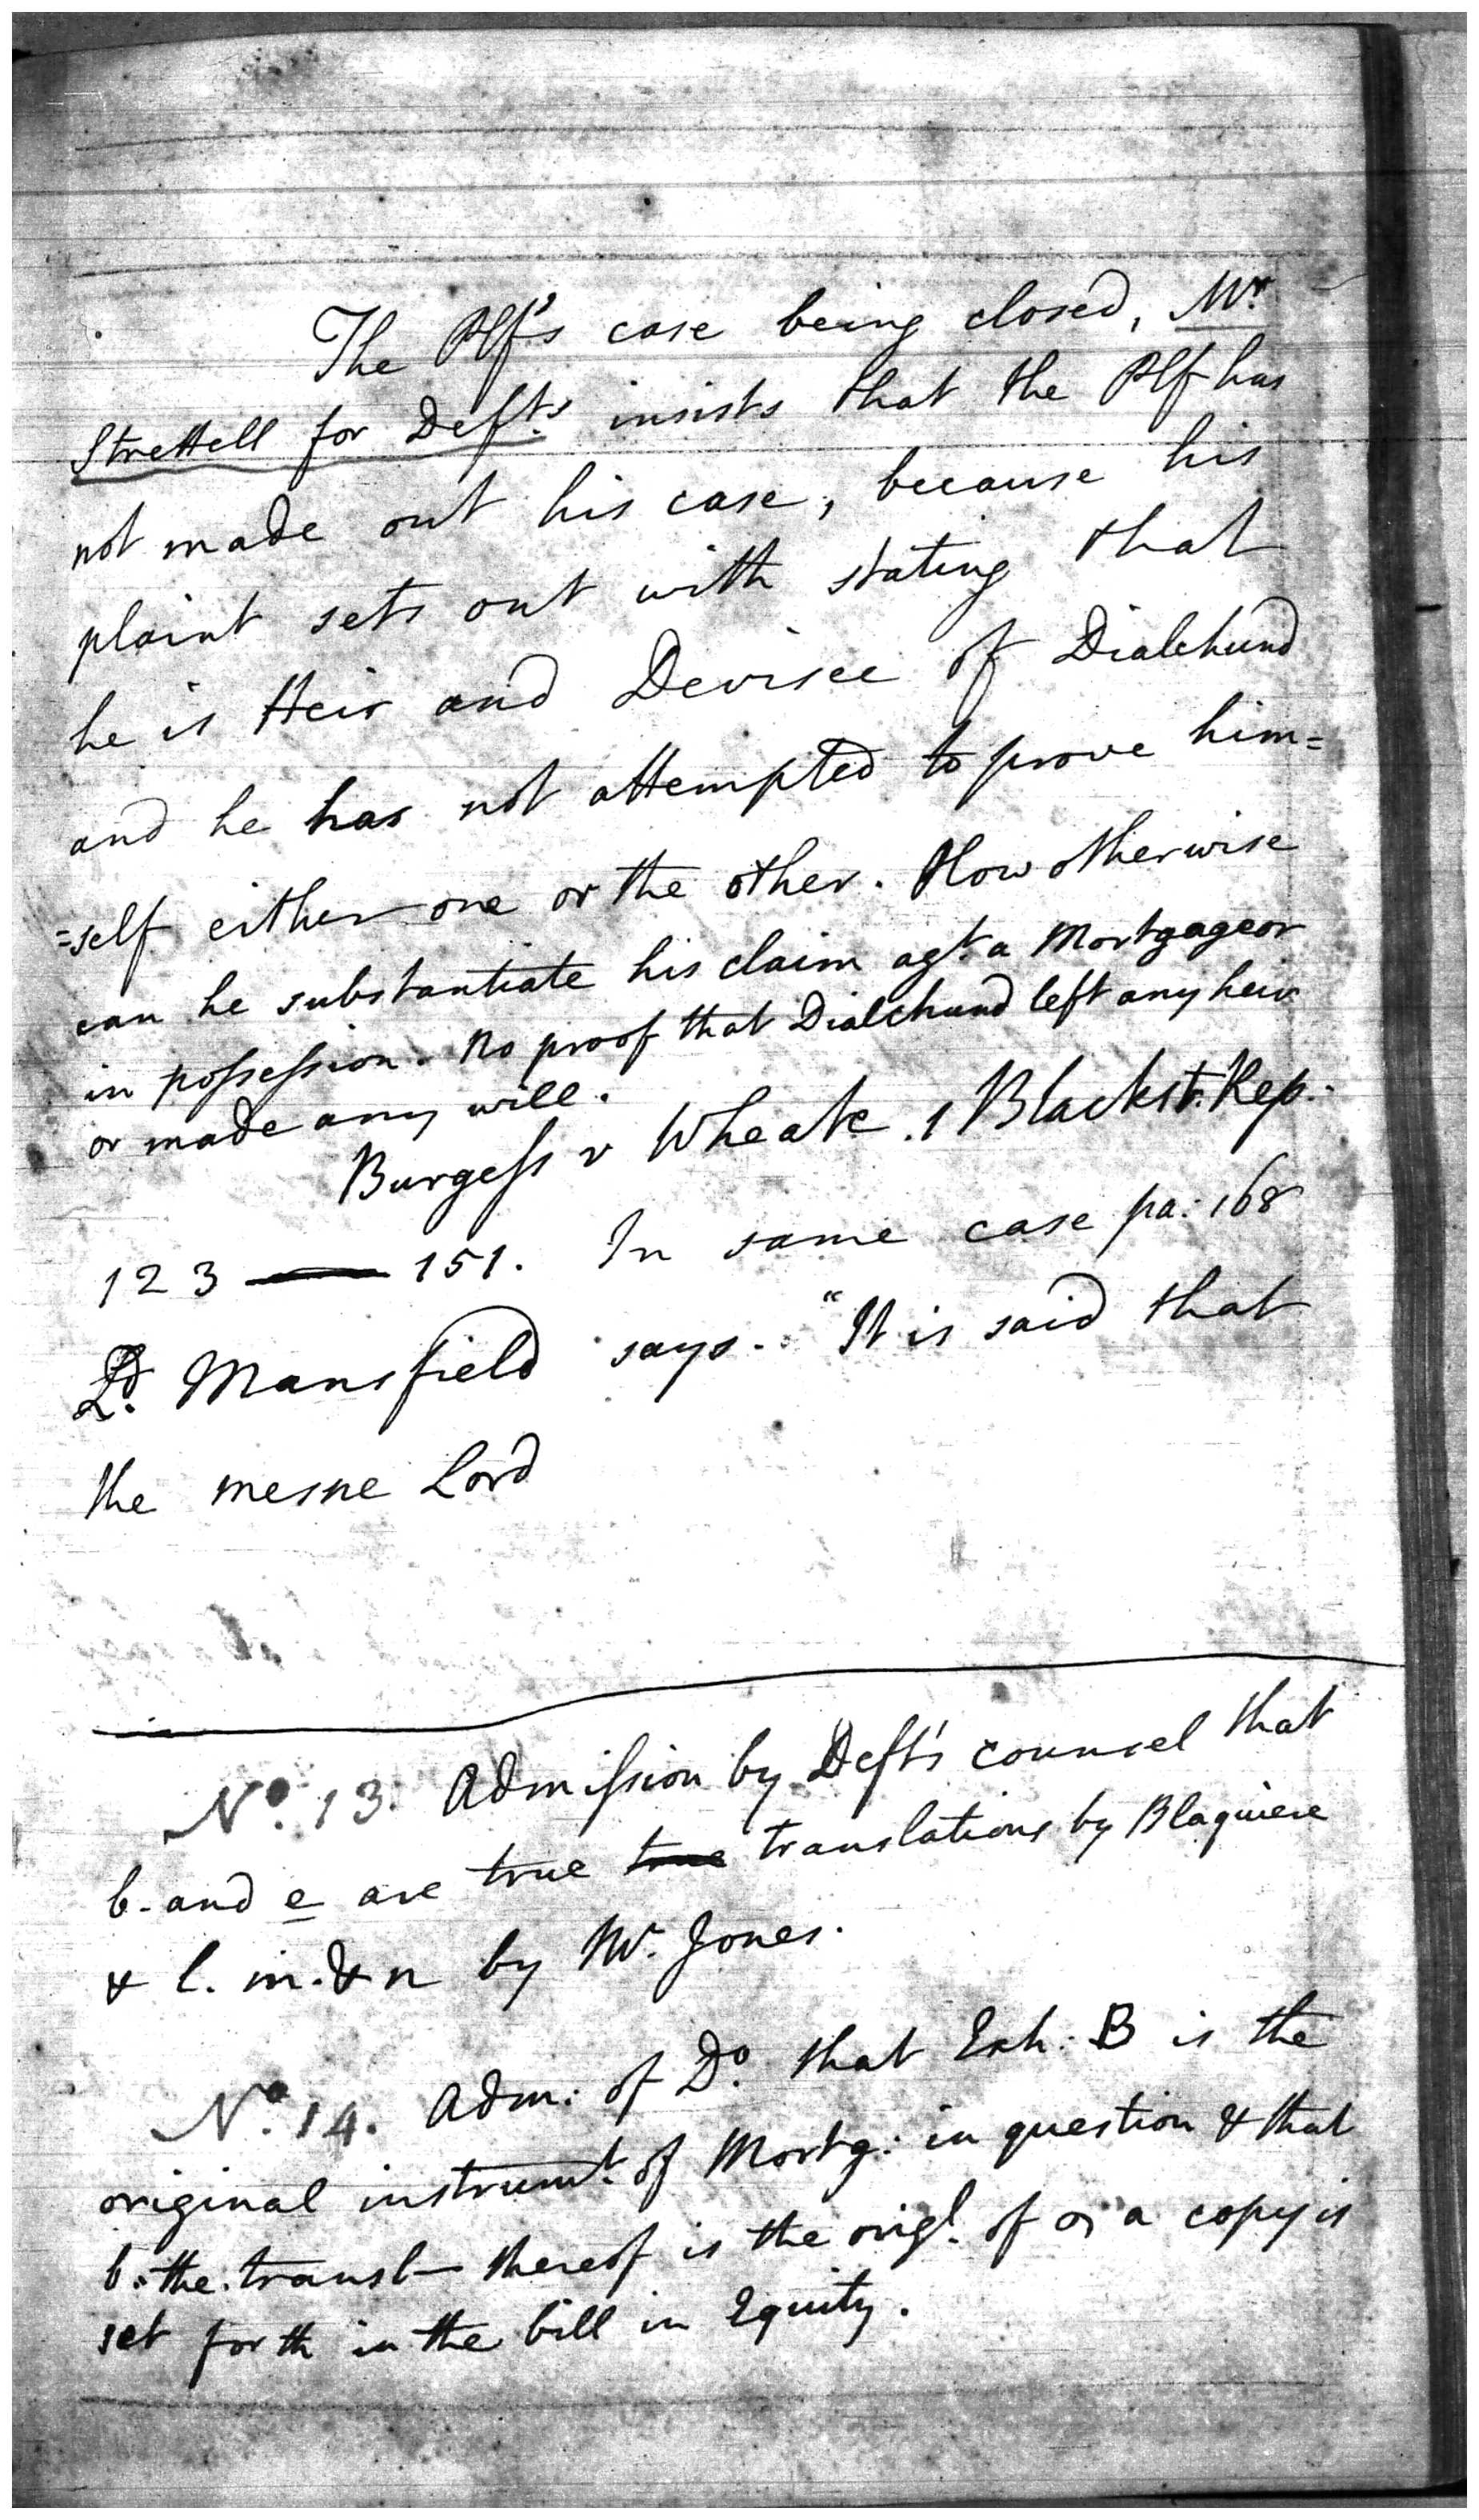 The Plf's case being closed, Mr.
Strettell for Defts. insists that the Plf has
not made out his case, because his
plaint sets out with stating that
he is Heir and Devisee of Dialchund
and he has not attempted to prove him=
=self either one or the other. How otherwise
can he substantiate his claim agt. a Mortgageor
in possession. No proof that Dialchund left any heir
or made any will.
Burgess v Wheate. 1 Blackst. Rep.
123 — 151. In same case pa: 168
Ld. Mansfield says. "It is said that
the mesne Lord
No. 13. Admission by Deft's counsel that
b. and e are true true translations by Blaquiere
& l. m. & n by Mr. Jones.
No. 14. Adm: of Do. that Exh: B is the
original instrumt. of Mortg: in question & that
b. the transl thereof is the origl. of a copy is
set forth in the bill in Equity.